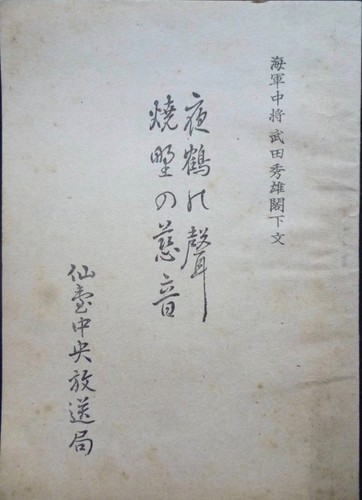 海軍中将 武田秀雄閣下文
夜鶴の聲
焼野の慈音
仙臺中央放送局